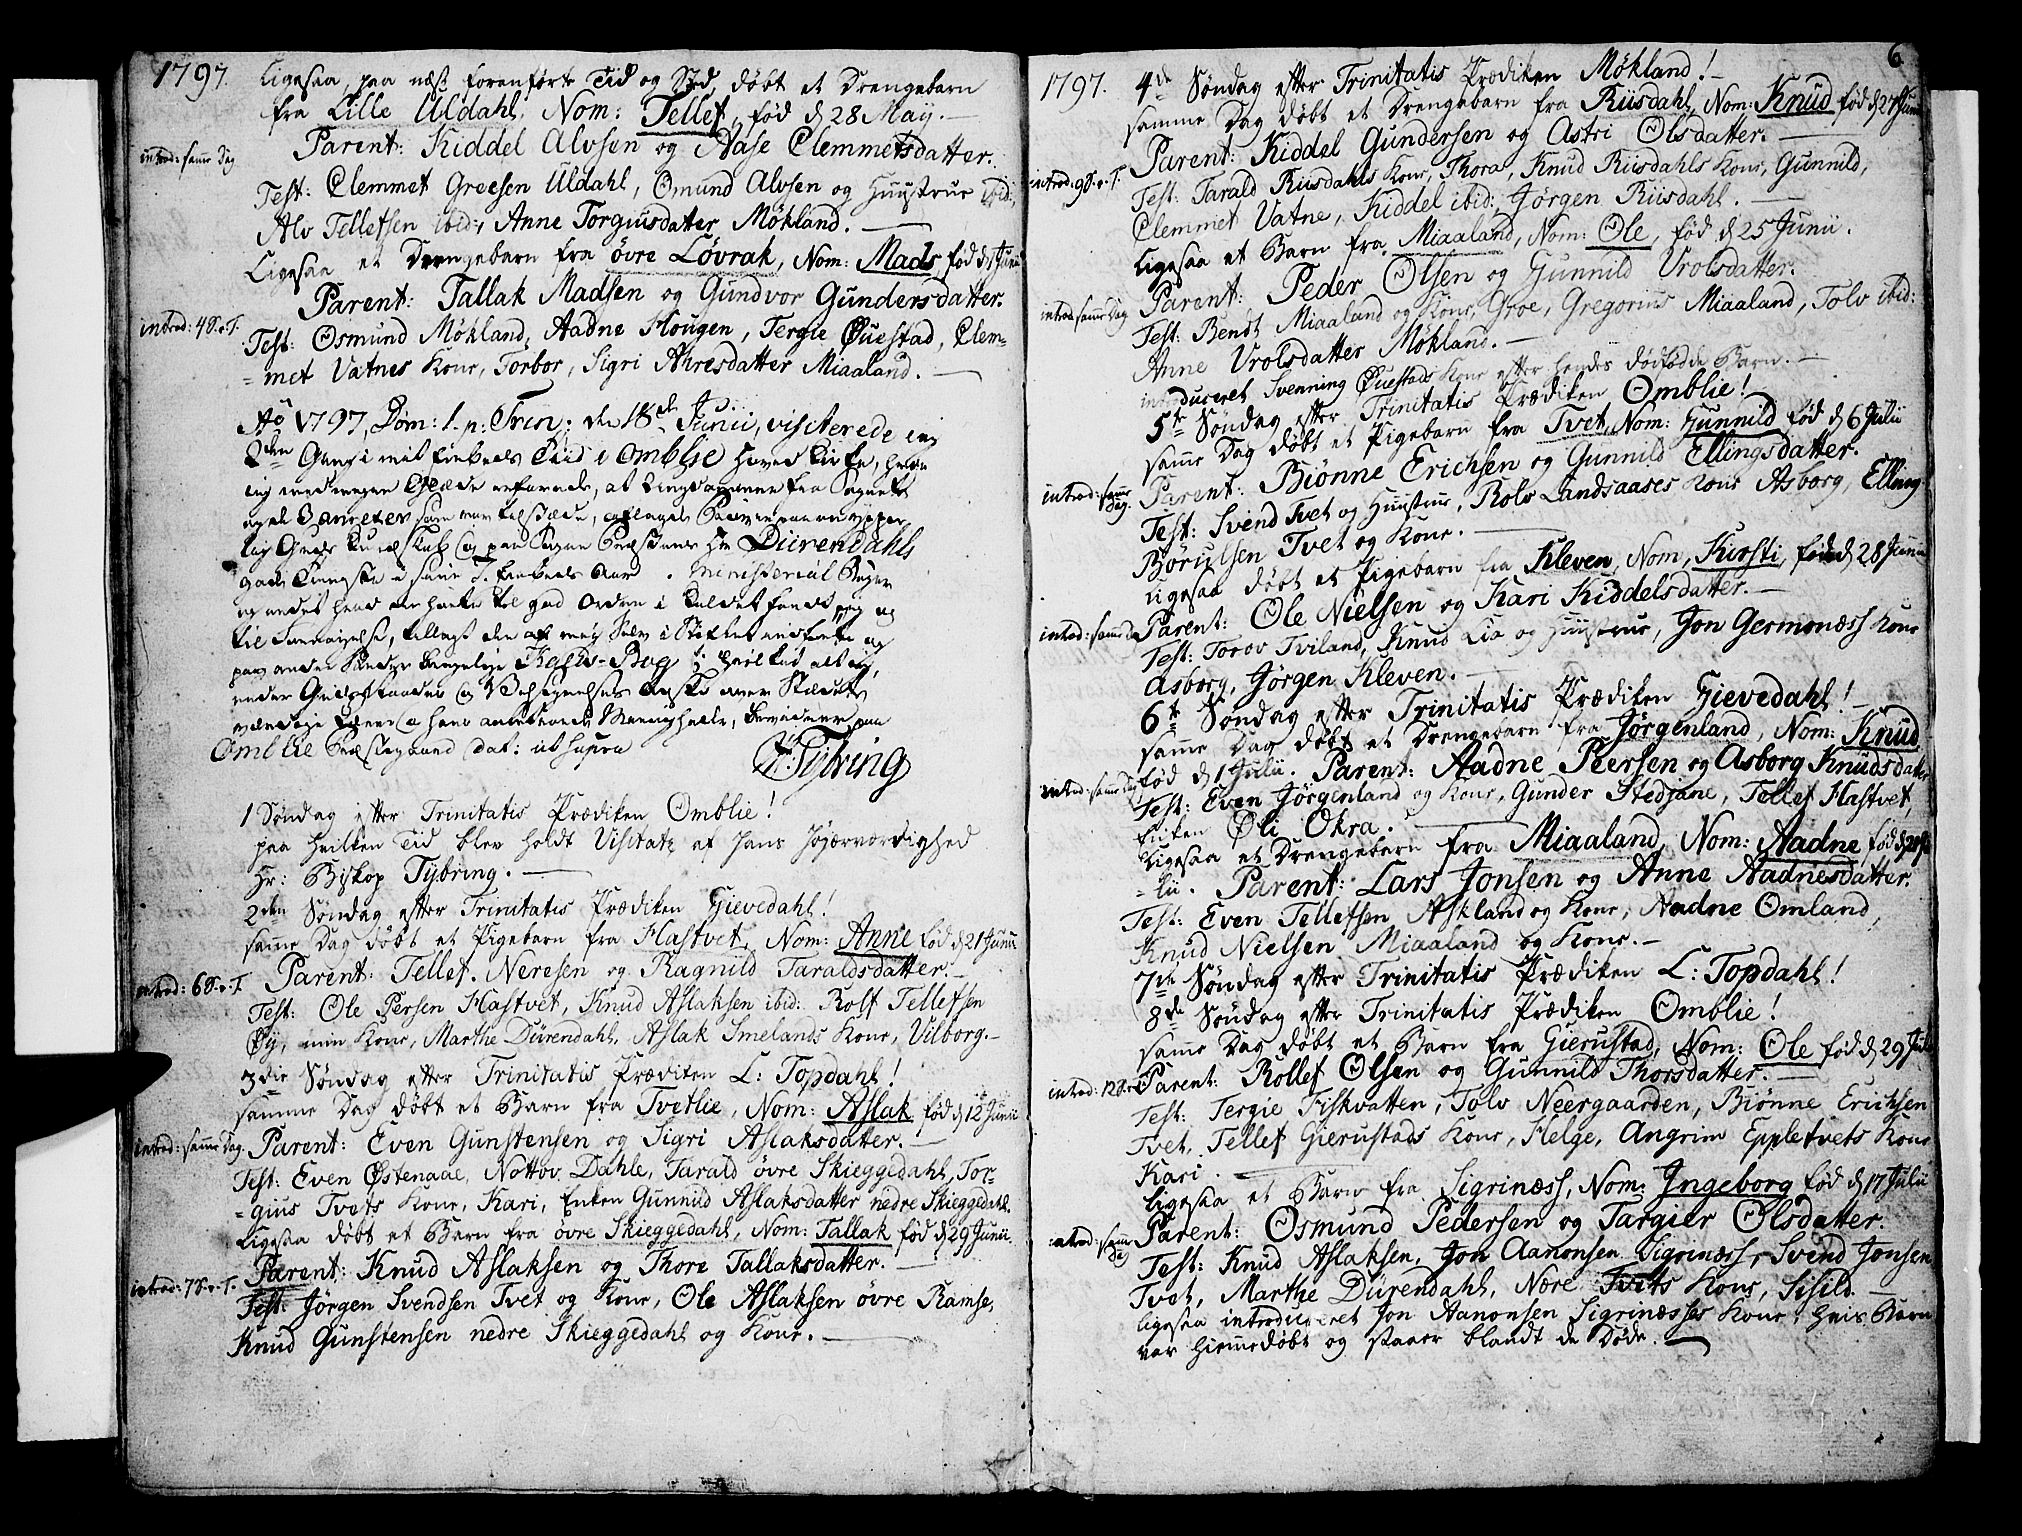 1797.
Ligesaa, paa næst forenførte Tid og Sted, døbt et Drengebarn
fra Lille Uldahl, Nom: Tellef, fød d 28 Maÿ.
introd: samme Dag
Parent: Kiddel Alvsen og Aase Clemmetsdatter.
Test: Clemmet Greesen Uldahl, Omund Alvsen og Huustrue ibid:,
Alv Tellefsen ibid:, Anne Torgiusdatter Møkland.
Ligesaa et Drengebarn fra øvre Løvrak, Nom: Mads, fød d 1 Junii
Parent: Tallak Madsen og Gundvor Gundersdatter.
introd: 4 S. e. T.
Test: Osmund Møkland, Aadne Hougen, Tergie Øuestad, Clem=
=met Vatnes Kone, Torbor, Sigri Ahresdatter Miaaland.
Aō 1797, Dom: 1. p: Trin: den 18de Junii, visiterede ieg
2den Gang i mit Embeds Tiid i Omblie Hoved Kirke, hvor
ieg med megen Glæde erfarede, at Ungdommen fra Sognet
Durendahls
Ministerial Bøger
og andet hvad der hører til god Orden i Kaldet fandt jeg og
Omblie Præstegaard dat: ut supra
Tybring
1 Søndag efter Trinitatis Prædiken Omblie!
paa hvilken Tid blev holdt Visitatz af Hans Høyærværdighed
Hr: Biskop Tybring.
2den Søndag efter Trinitatis Prædiken Gievedahl!
samme Dag døbt et Pigebarn fra Hastvet, Nom: Anne fød d 21 Junii
introd: 6 S. e. T.
Parent: Tellef Neresen og Ragnild Taraldsdatter.
Test: Ole Persen Hastvet, Knud Aslaksen ibid: Rolf Tellefsen
Øy, min Kone, Marthe Dürendahl, Aslak Smelands Kone, Vilborg.
3die Søndag efter Trinitatis Prædiken L: Topdahl!
samme Dag døbt et Barn fra Tvetlie, Nom: Aslak fød d 12 Junii
introd: samme Dag.
Parent: Even Gunstensen og Sigri Aslaksdatter.
Test: Even Østenaae, Nottov Dahle, Tarald øvre Skieggedahl, Tor=
=gius Tvets Kone, Kari, Enken Gunnild Aslaksdatter nedre Skieggedahl.
Ligesaa døbt et Barn fra øvre Skieggedahl, Nom: Tallak fød d 29 Junii.
introd: 7 S. e. T.
Parent: Knud Aslaksen og Thore Tallaksdatter.
Test: Jørgen Svendsen Tvet og Kone, Ole Aslaksen øvre Ramse,
Knud Gunstensen nedre Skieggedahl og Kone.
6
1797.
4de Søndag efter Trinitatis Prædiken Møkland!
samme Dag døbt et Drengebarn fra Riisdahl, Nom: Knud fød d 27 Junii
Parent: Kiddel Gundersen og Astri Olsdatter.
introd: 9 S. e. T.
Test: Tarald Riisdahls Kone, Thora, Knud Riisdahls Kone, Gunnild,
Clemmet Vatne, Kiddel ibid:, Jørgen Riisdahl.
Ligesaa et Barn fra Miaaland, Nom: Ole, fød d 25 Junii.
Parent: Peder Olsen og Gunnild Vrolsdatter.
introd: samme Dag
Test: Bendt Miaaland og Kone, Groe, Gregorius Miaaland, Tolv ibid:
Anne Vrolsdatter Møkland.
introduceret Svenning Øuestads Kone efter hendes dødfødde Barn.
5te Søndag efter Trinitatis Prædiken Omblie!
samme Dag døbt et Pigebarn fra Tvet, Nom: Gunnild fød d 6 Julii
introd: samme Dag.
Parent: Biønne Erichsen og Gunnild Ellingsdatter.
Test: Svend Tvet og Huustrue, Rolv Landsaases Kone Asborg, Elling
Børulsen Tvet og Kone.
Ligesaa døbt et Pigebarn fra Kleven, Nom, Kirsti, fød d 28 Junii
introd: samme Da
Parent: Ole Nielsen og Kari Kiddelsdatter.
Test: Torov Tviland, Knud Lio og Huustrue, Jon Germonæss Kone
Asborg, Jørgen Kleven.
6te Søndag efter Trinitatis Prædiken Gievedahl!
samme Dag døbt et Drengebarn fra Jørgenland, Nom: Knud
fød d 1 Julii. Parent: Aadne Peersen og Asborg Knudsdatter
introd: samme Dag
Test: Even Jørgenland og Kone, Gunder Stedjane, Tellef Hastvet,
Enken Øli Okra.
Ligesaa et Drengebarn fra Miaaland, Nom: Aadne fød d 20 Ju
=lii. Parent: Lars Jonsen og Anne Aadnesdatter.
Test: Even Tellefsen Askland og Kone, Aadne Omland,
Knud Nielsen Miaaland og Kone.
7de Søndag efter Trinitatis Prædiken L: Topdahl!
8de Søndag efter Trinitatis Prædiken Omblie!
samme Dag døbt et Barn fra Gierustad, Nom: Ole fød d 29 Julii
introd: 12 S. e. T.
Parent: Rollef Olsen og Gunnild Thorsdatter.
Test: Tergie Fiskvatten, Tolv Neergaarden, Biønne Erichsen
Tvet, Tellef Gierustads Kone, Helge, Angrim Eppletvets Kone
Kari.
Ligesaa et Barn fra Sigrinæss, Nom: Ingeborg fød d 17 Julii
introd: samme Da
Parent: Osmund Pedersen og Targier Olsdatter.
Test: Knud Aslaksen, Jon Aanonsen Sigrinæss, Svend Jonsen
Tvet, Marthe Dürendahl, Nere Tvets Kone, Sisild.
Ligesaa introduceret Jon Aanonsen Sigrinæsses Kone, hvis Barn
var hiemmedøbt og staaer blandt de Døde.